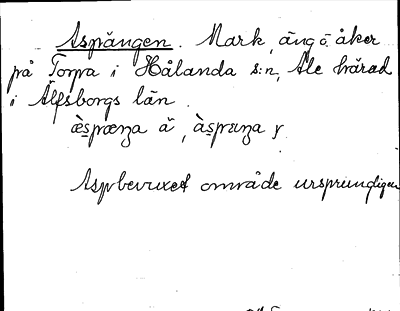 Aspängen. Mark, äng o. åker
på Torpa i Hålanda s:n, Ale härad
i Älfsborgs län.
æ̀spæŋa ä, àspæŋa y
Aspbevuxet område ursprungligen